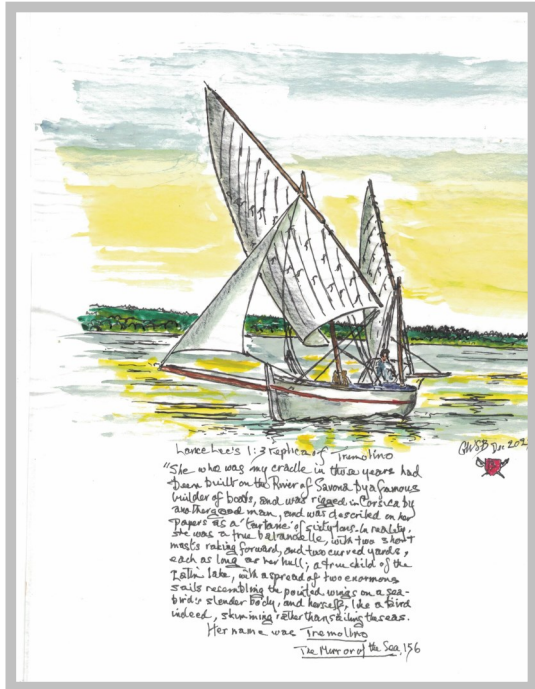 GWSB Dec 202
Lance Lee's 1:3 replica of Tremolino
"She who was my cradle in those years had
been built on the River of Savona by a famous
builder of boats, and was rigged in Corsica by
another good man, and was described on her
papers as a 'tartane' of sixty tons. In reality,
she was a true balancelle, with two short
masts raking forward, and two curved yards,
each as long as her hull; a true child of the
Latin lake, with a spread of two enormous
sails resembling the pointed wings on a sea-
bird's slender body, and herself, like a bird
indeed, skimming rather than sailing the seas.
Her name was Tremolino
The Mirror of the Sea, 156